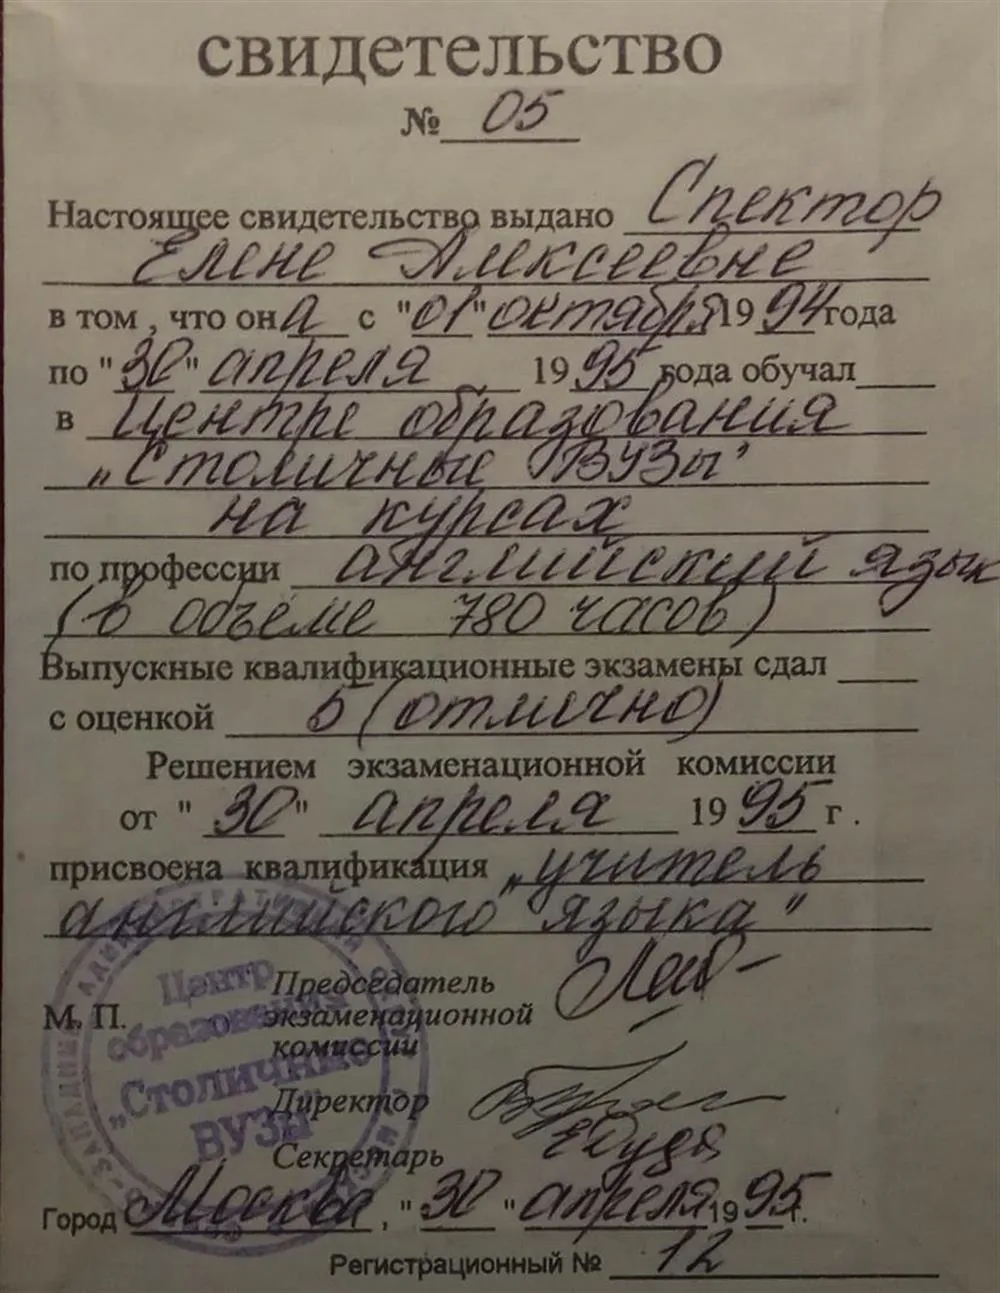 свидетельство
№ 05
Настоящее свидетельство выдано Спектор
Елене Алексеевне
в том, что она с "01" октября 1994 года
по "30" апреля 1995 года обучал
в Центре образования
„Столичные ВУЗы"
на курсах
по профессии английский язык
(в объёме 780 часов)
Выпускные квалификационные экзамены сдал
с оценкой 5 (отлично)
Решением экзаменационной комиссии
от "30" апреля 1995 г.
присвоена квалификация „учитель
английского языка"
Председатель
М. П. экзаменационной
комиссии
Директор
Секретарь
Город Москва, "30" апреля 1995 г.
Регистрационный № 12
Центр
образования
„Столичные
ВУЗы"